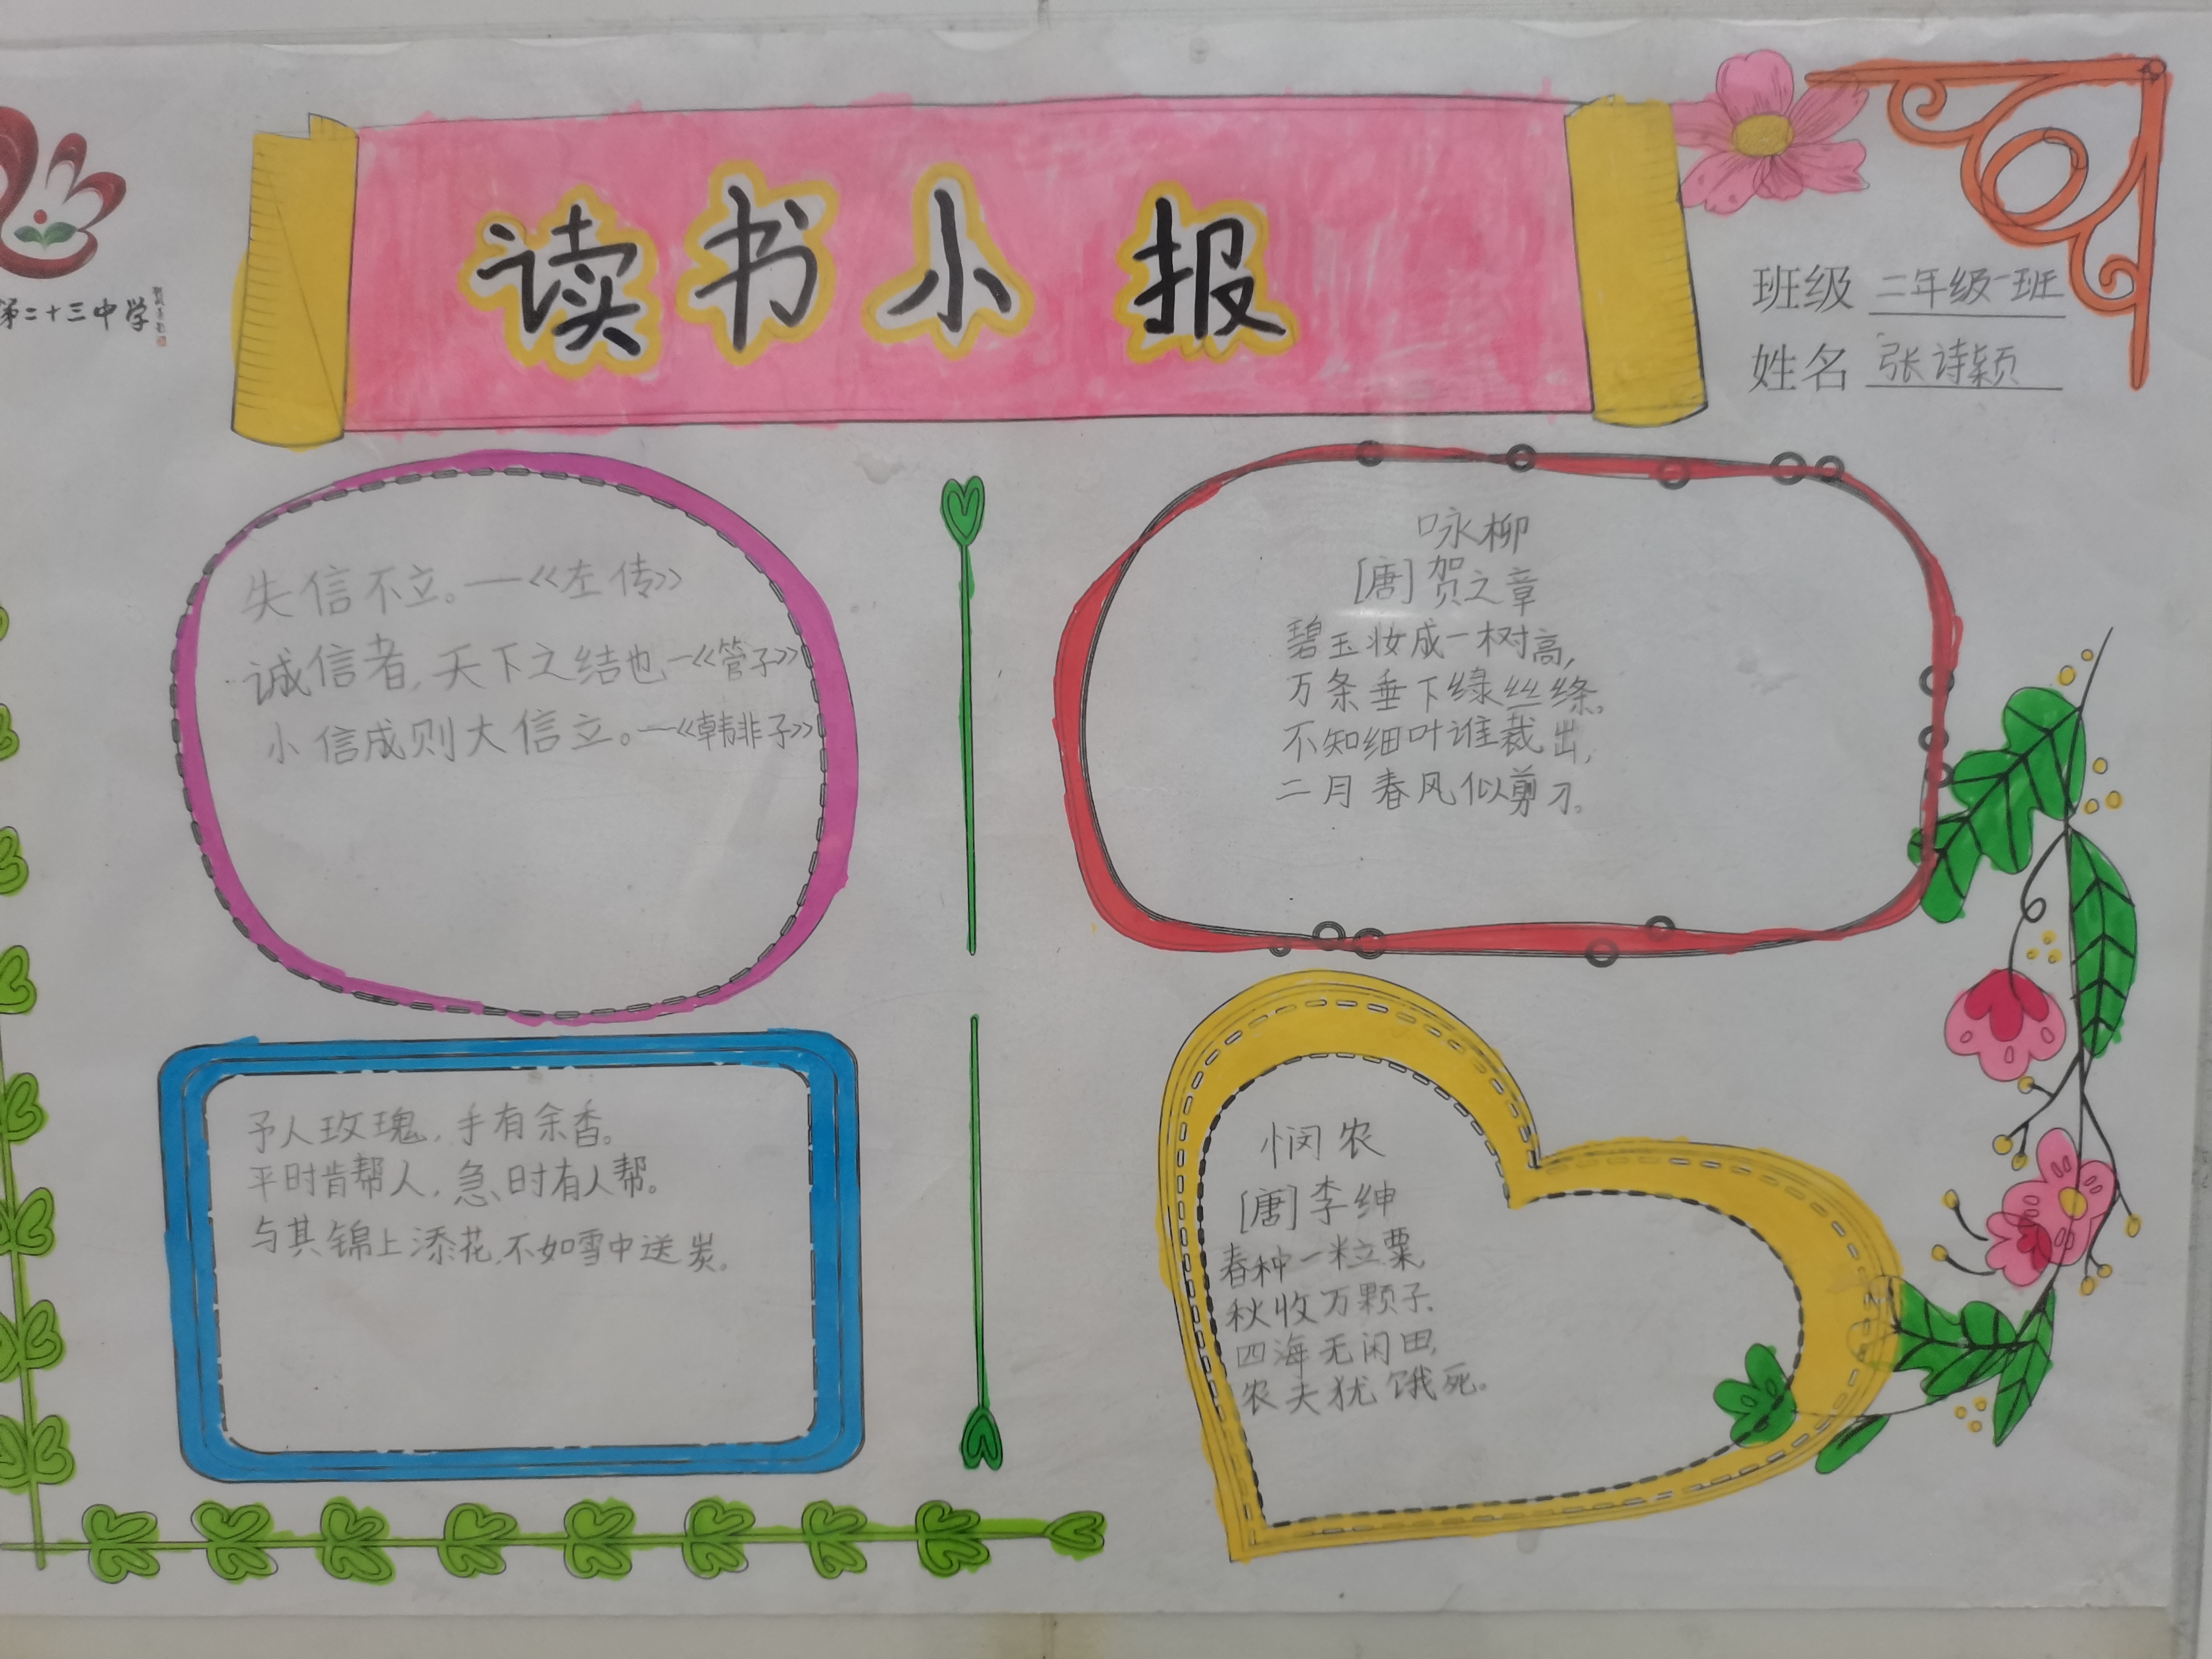 读书小报
第二十三中学
班级 二年级一班
姓名 张诗颖
失信不立。——《左传》
诚信者,天下之结也—《管子》
小信成则大信立。—《韩非子》
咏柳
[唐]贺之章
碧玉妆成一树高,
万条垂下绿丝绦。
不知细叶谁裁出,
二月春风似剪刀。
予人玫瑰,手有余香。
平时肯帮人,急时有人帮。
与其锦上添花,不如雪中送炭。
悯农
[唐]李绅
春种一粒粟,
秋收万颗子,
四海无闲田,
农夫犹饿死。